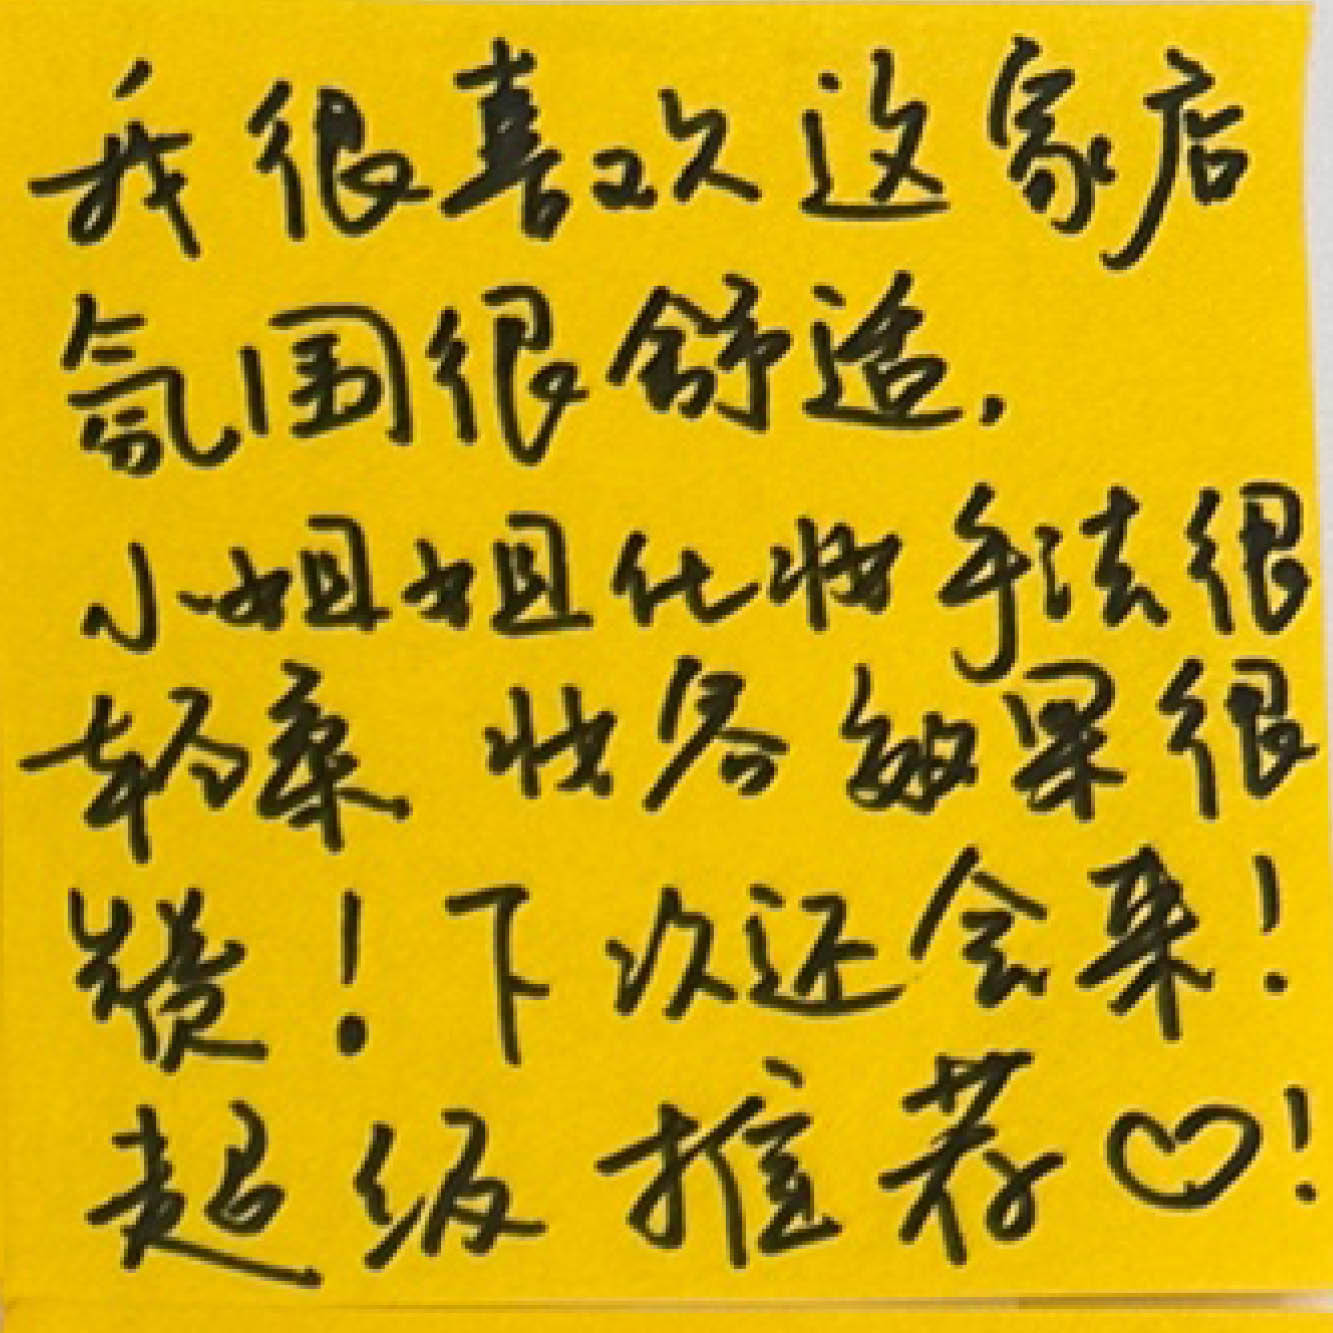 我很喜欢这家店
氛围很舒适.
小姐姐化妆手法很
轻柔 妆容效果很
赞!下次还会来!
超级推荐♡!